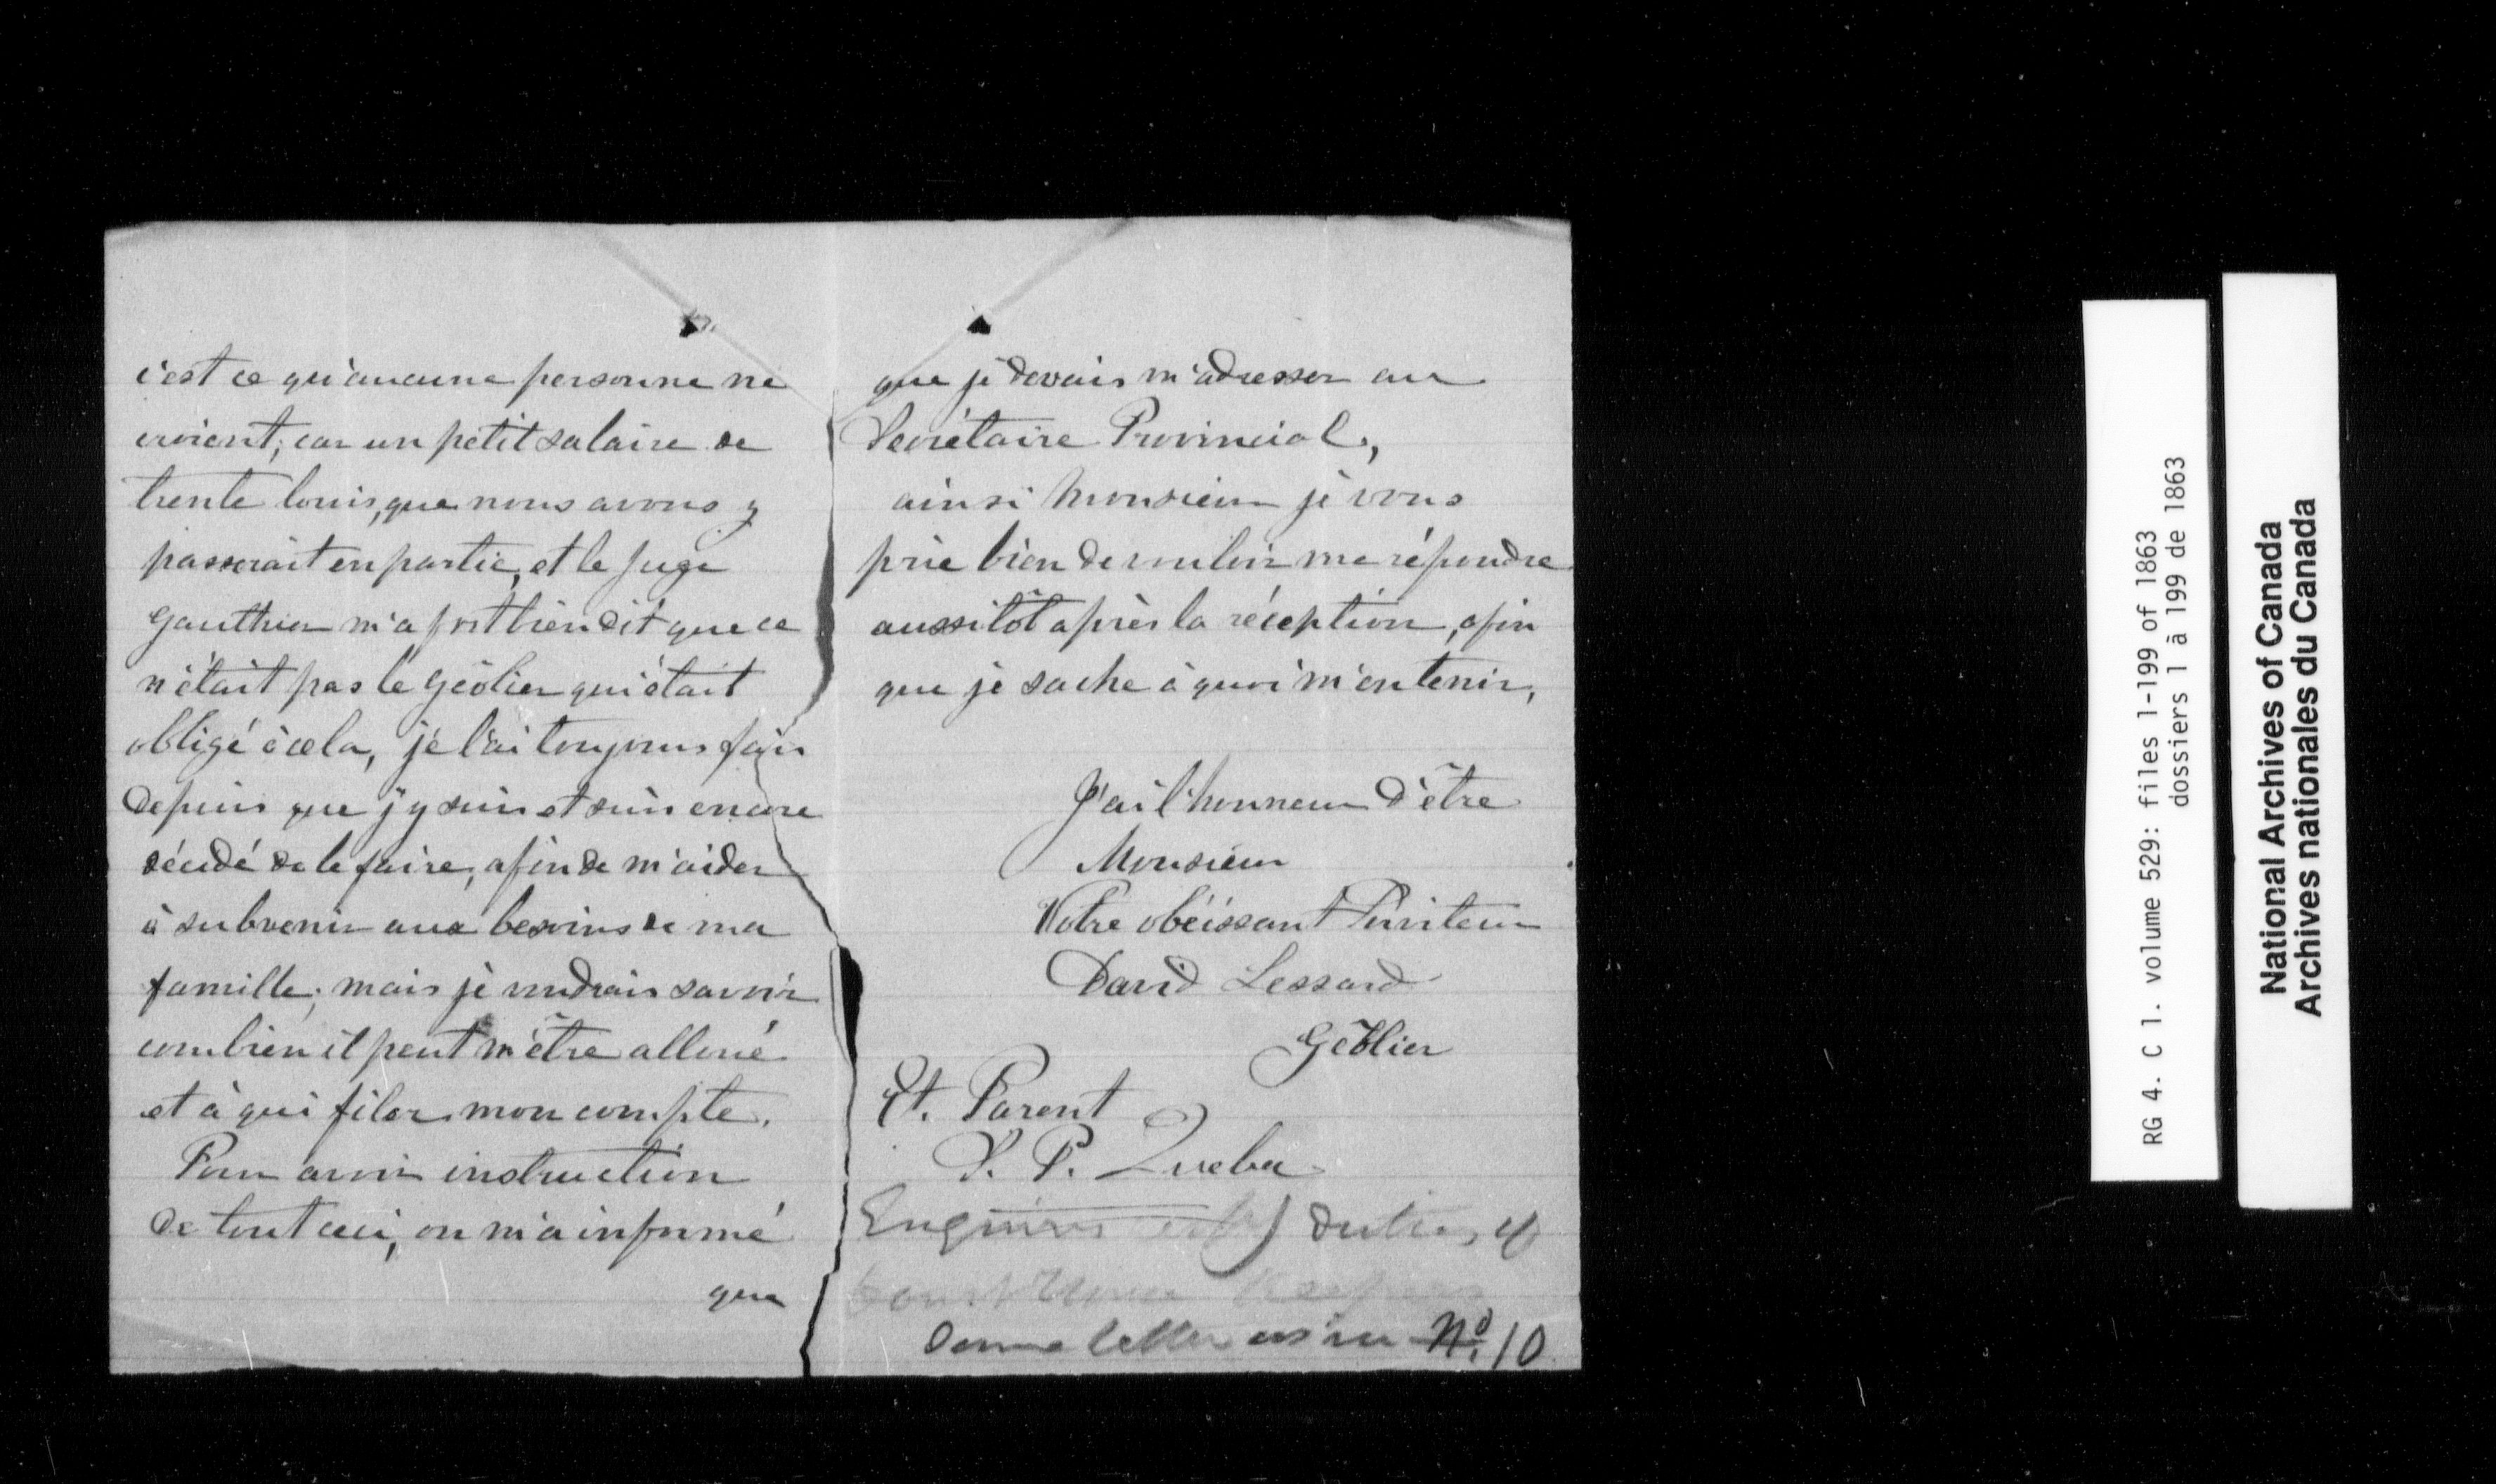 c'est ce qu'aucune personne ne
croient; car un petit salaire de
trente louis, que nous avons y
passerait en partie, et le Juge
Gauthier m'a fort bien dit que ce
n'était pas le Géôlier qui était
obligé à cela, je l'ai toujours fais
depuis que j'y suis et suis encore
décidé de le faire, afin de m'aider
à subvenir aux besoins de ma
famille; mais je voudrais savoir
combien il peut m'être alloué
et à qui filer mon compte.
Pour avoir instruction
de tout ceci, on m'a informé
que
que je devais m'adresser au
Secrétaire Provincial,
ainsi Monsieur je vous
prie bien de vouloir me répondre
aussitôt après la réception, afin
que je sache à quoi m'en tenir,
J'ai l'honneur d'être
Monsieur
Votre obéissant Serviteur
David Lessard
Géôlier
Et. Parent
S. P. Quebec
Enquires duties of
Court House Keepers
Same letter as in No. 10
RG 4. C 1. volume 529: files 1-199 of 1863
dossiers 1 à 199 de 1863
National Archives of Canada
Archives nationales du Canada